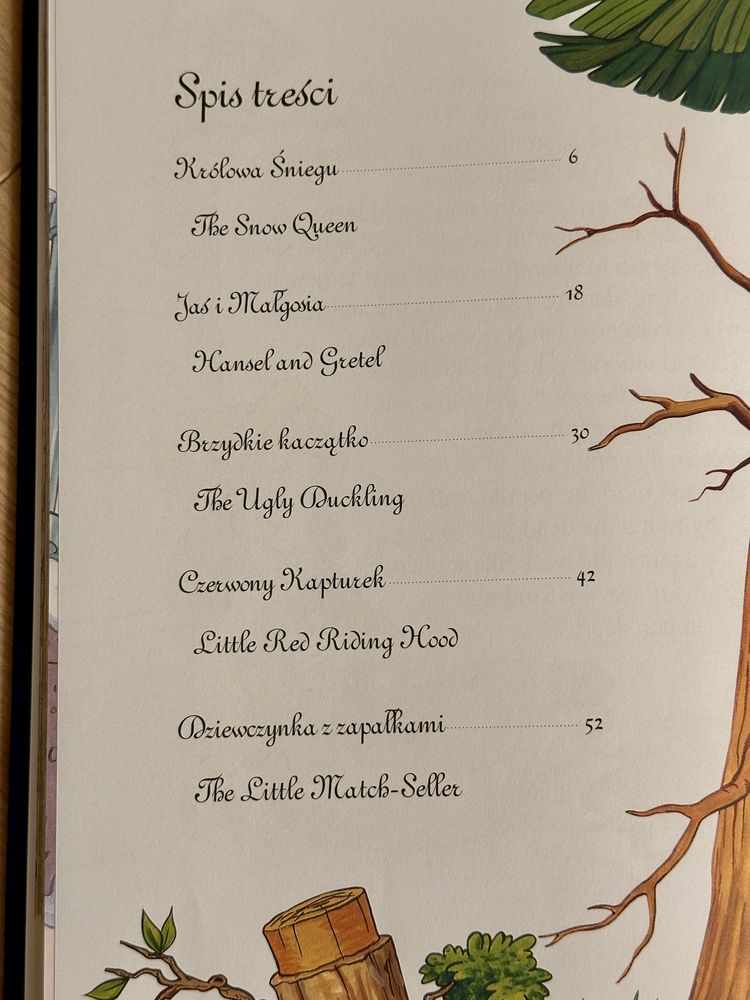 Spis treści
Królowa Śniegu 6
The Snow Queen
Jaś i Małgosia 18
Hansel and Gretel
Brzydkie kaczątko 30
The Ugly Duckling
Czerwony Kapturek 42
Little Red Riding Hood
Dziewczynka z zapałkami 52
The Little Match-Seller